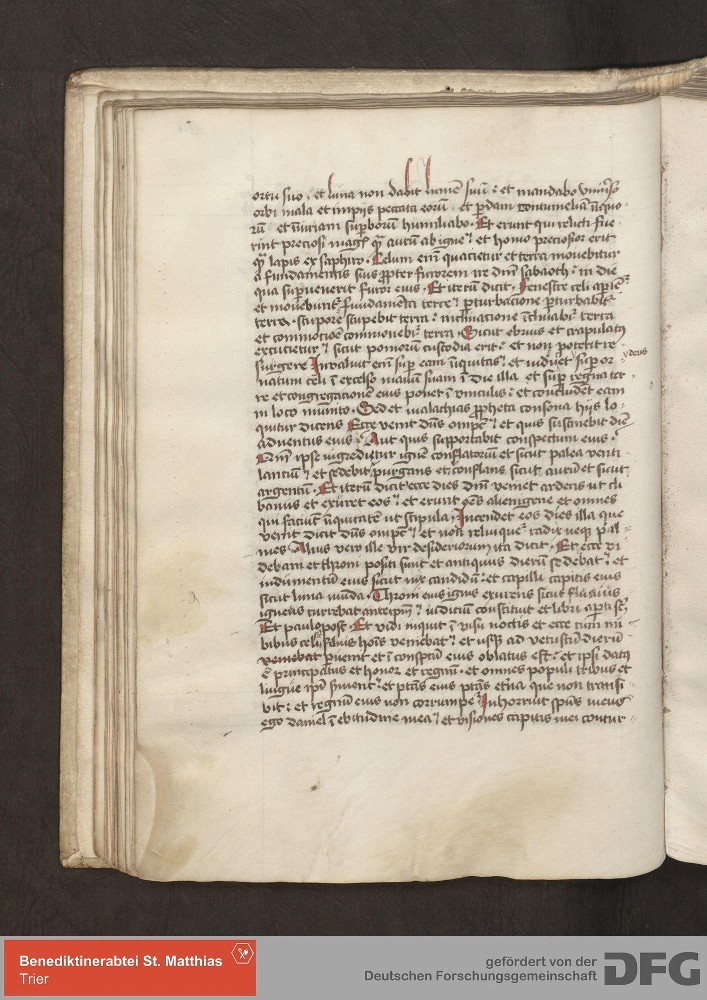 ortu suo, et luna non dabit lumē suū : et mandabo vniu̾so
orbi mala et impijs peccata eorū et p̱dam contumeliā iniquo
rū et iniuriam sup̱borum humiliabo. Et erunt qui relicti fue
rint preciosi mag̾ qͣ aurum ab igne : et homo preciosior erit
qͣ lapis ex saphiro. Celum eni̅ quacietur et terra mouebitur
a fundamentis suis propter furorem ire dni̅ sabaoth : in die
qua sup̱uenerit furor eius. Et iterū dicit. Fenestre celi aꝑiēt̾
et mouebunt̾ fundamēta terre : ꝑturbacione ꝑturbabit̾
terra. stupore stupebit terra : inclinacione īclinabit̾ terra
et commotioē commouebit̾ terra. Sicut ebrius et crapulatꝰ
excutietur : sicut pomorū custodia erit : et non poterit re
surgere Inualuit eni̅ suꝑ eam iniquitas : et inducet suꝑ or
ydeus
natum celi ī excelso manū suam ī die illa et suꝑ regna ter
re et congregationē eius ponet ī vinculis : et concludent eam
in loco munito. Sed et malachias ꝓpheta consona hijs lo
quitur dicens Ecce venit dn̅s omp̅s : et quis sustinebit diē
aduentus eius. Aut quis supportabit conspectum eius.
Qm̅ ipse ingredietur ignē conflatorium et sicut palea venti
lancium : et sedebit purgans et conflans sicut aurū et sicut
argentū. Et iterū dicit ecce dies dn̅i veniet ardens ut cli
banus et exuret eos : et erunt oēs alienigene et omnes
qui faciūt iniquitatē ut stipula, Incendet eos dies illa que
venit dicit dn̅s omp̅s : et non relinquet̾ radix neqꝫ pal
mes Alius vero ille vir desideriorum ita dicit. Et ecce vi
debam et throni positi sunt et antiquus dierū sedebat : et
indumentū eius sicut nix candidū : et capilli capitis eius
sicut lana mūda. Throni eius ignis exurens sicut fluuius
igneus currebat ante ip̅m : iudiciū constituit et libri aꝑti sūt
Et paulo post. Et vidi inquit ī visu noctis et ecce cum nu
bibus celi filius hois̅ veniebat : et usqꝫ ad vetustū dierū
veniebat peruenit et ī conspectū eius oblatus est : et ipsi datꝰ
ē principatus et honor et regnū. et omnes populi tribus et
lingue ip̅i seruient : et ptās eius ptās etn̅a que non transi
bit : et regnū eius non corrumpet̾ Inhorruit sp̅us meus
ego daniel ī ebitudine mea : et visiones capitis mei contur
Benediktinerabtei St. Matthias
Trier
gefördert von der
Deutschen Forschungsgemeinschaft
DFG